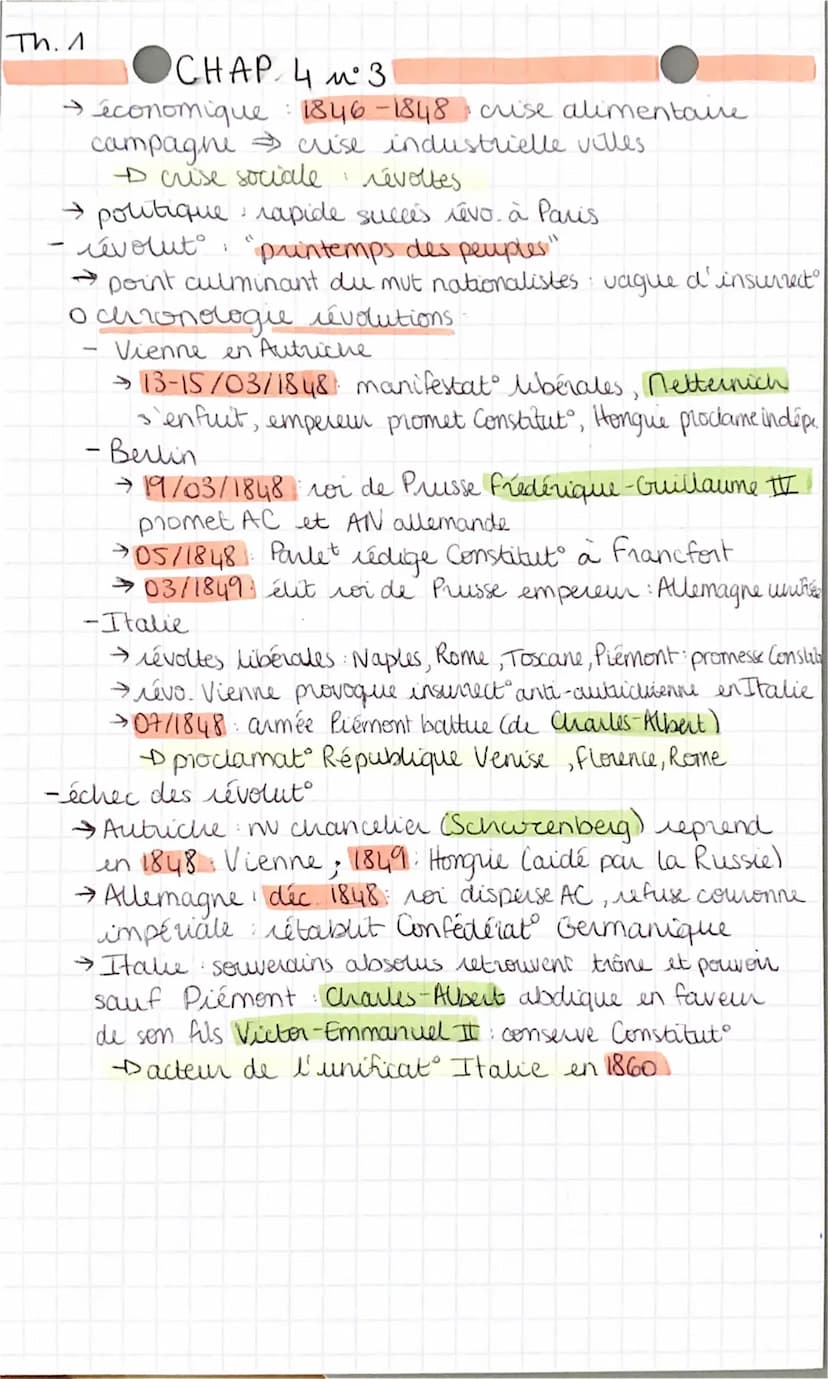 Th. 1
CHAP. 4 n°3
→ économique : 1846-1848 : crise alimentaire
campagne ⇒ crise industrielle villes
→ crise sociale : révoltes
→ politique : rapide succès révo. à Paris
- révolut° : "printemps des peuples"
→ point culminant du mvt nationalistes : vague d'insurrect°
o chronologie révolutions
- Vienne en Autriche
→ 13-15/03/1848 : manifestat° libérales, Metternich
s'enfuit, empereur promet Constitut°, Hongrie proclame indépe.
- Berlin
→ 19/03/1848 : roi de Prusse Frédérique-Guillaume IV
promet AC et AN allemande
→ 05/1848 : Parlet rédige Constitut° à Francfort
→ 03/1849 : élit roi de Prusse empereur : Allemagne unifiée
- Italie
→ révoltes libérales : Naples, Rome, Toscane, Piémont : promesse Constit
→ révo. Vienne provoque insurrect° anti-autrichienne en Italie
→ 07/1848 : armée Piémont battue (de Charles-Albert)
→ proclamat° République Venise, Florence, Rome
- échec des révolut°
→ Autriche : nv chancelier (Scharzenberg) reprend
en 1848 : Vienne ; 1849 : Hongrie (aidé par la Russie)
→ Allemagne : déc. 1848 : roi disperse AC, refuse couronne
impériale : rétablit Confédérat° Germanique
→ Italie : souverains absolus retrouvent trône et pouvoir
sauf Piémont : Charles-Albert abdique en faveur
de son fils Victor-Emmanuel II : conserve Constitut°
→ acteur de l'unificat° Italie en 1860